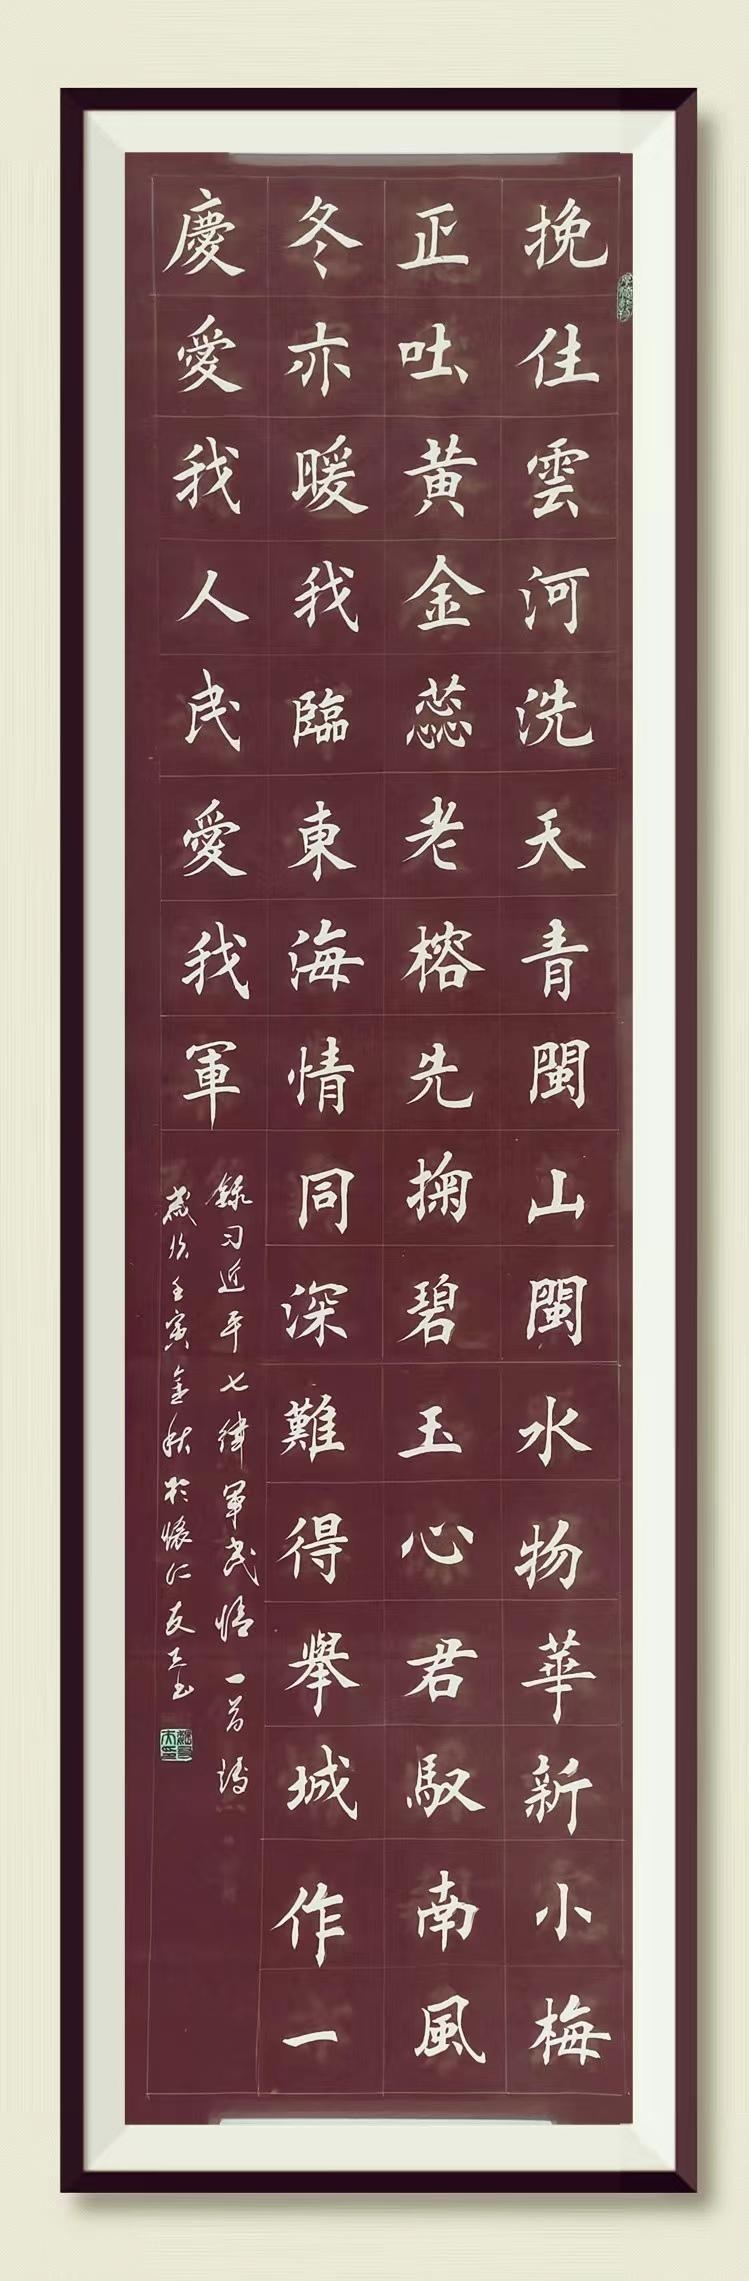 挽住雲河洗天青閩山閩水物華新小梅
正吐黄金蕊老榕先掬碧玉心君馭南風
冬亦暖我臨東海情同深難得舉城作一
慶愛我人民愛我軍
錄习近平七律軍民情一首
歲次壬寅金秋於懷仁友